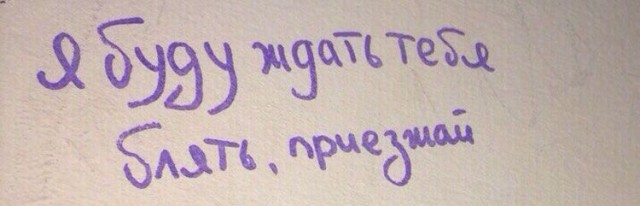 я буду ждать тебя
блять, приезжай